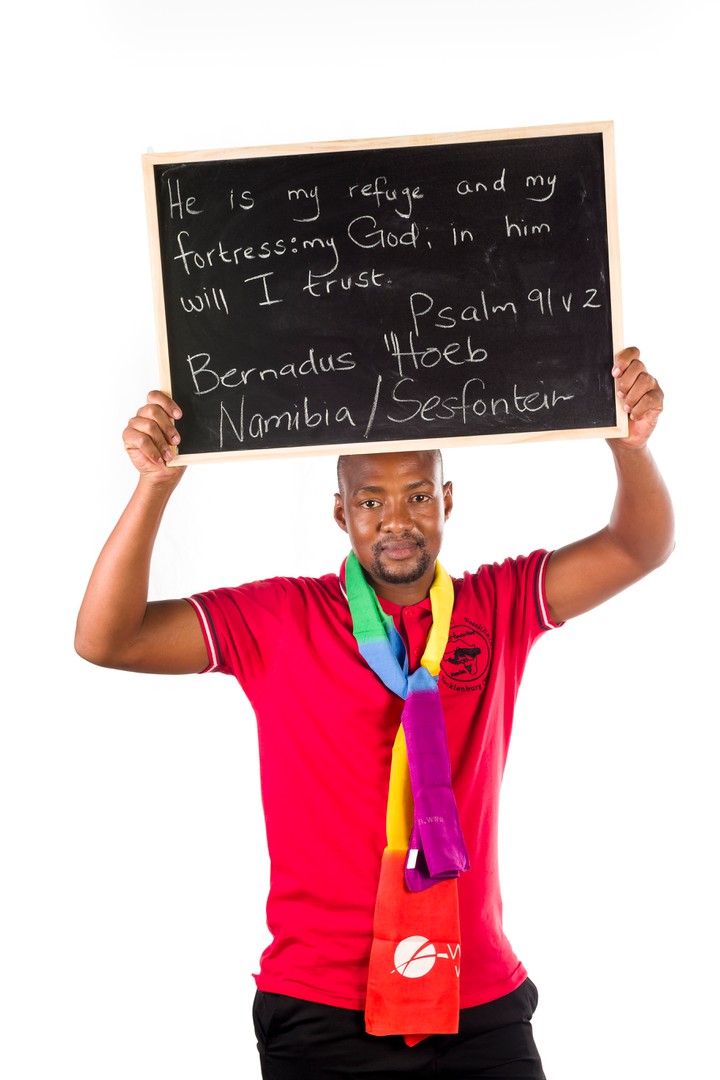 He is my refuge and my
fortress:my God; in him
will I trust.
Psalm 91 v 2
Bernadus ǁHoeb
Namibia/Sesfontein